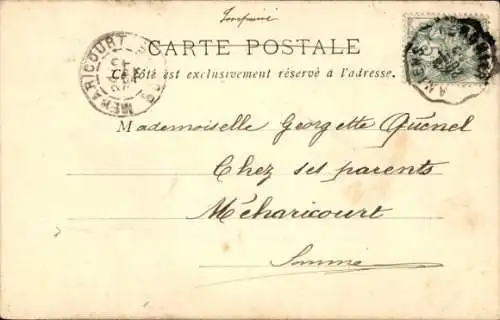 CARTE POSTALE
Ce côté est exclusivement réservé à l'adresse.
MEHARICOURT
AMIENS
Mademoiselle Georgette Quénel
Chez ses parents
Méharicourt
Somme